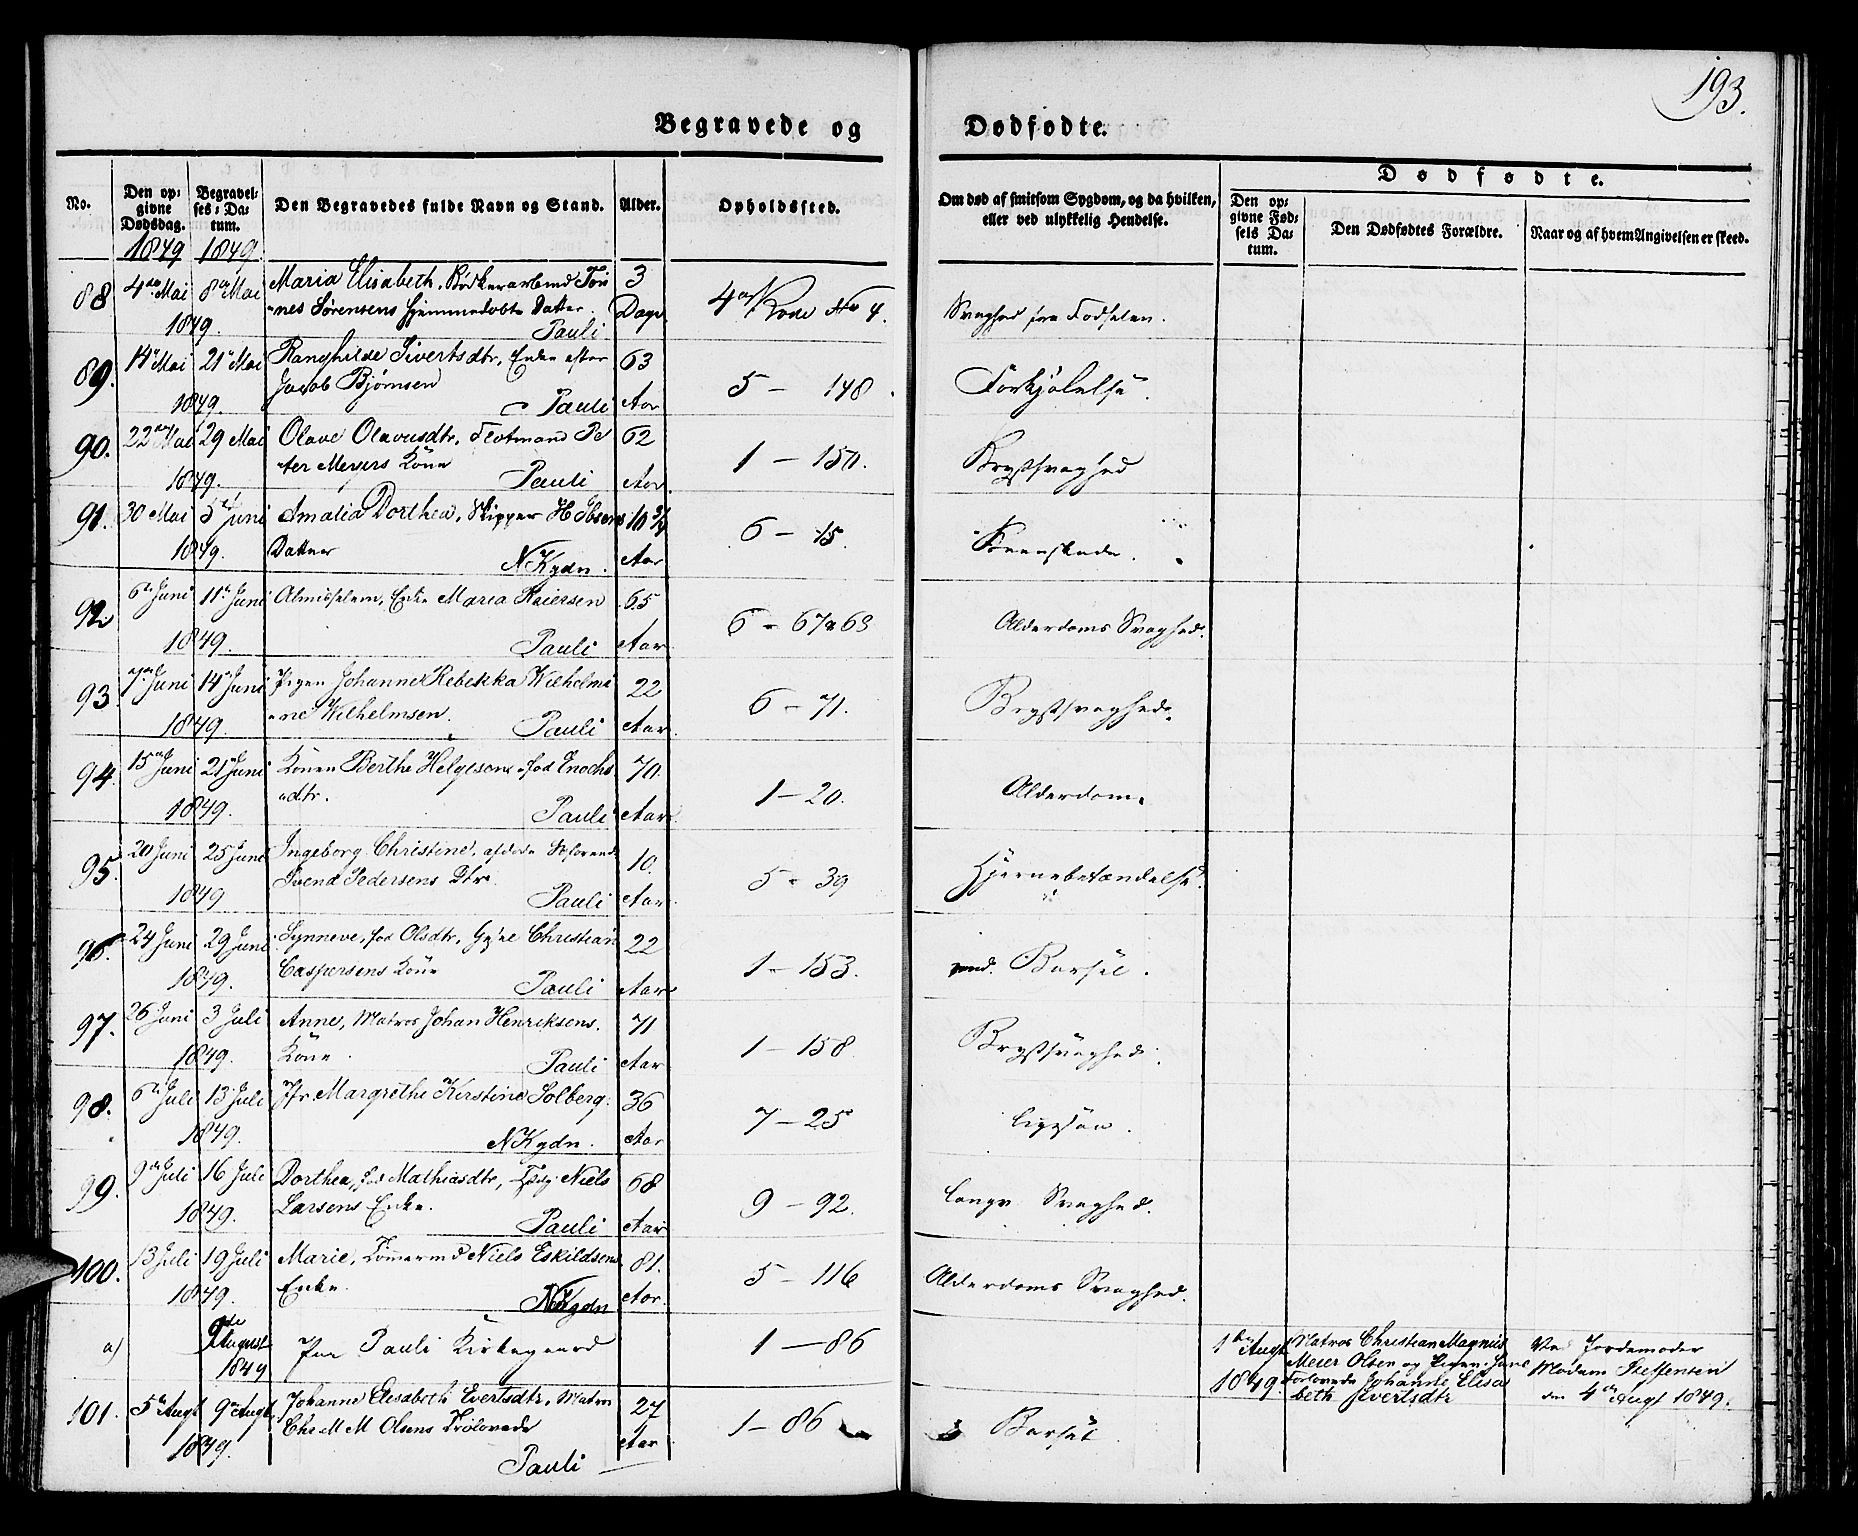 193.
Begravede og Dødfødte.
No.
Den opgivne Dødsdag.
Begravelses-Datum.
Den Begravedes fulde Navn og Stand.
Alder.
Opholdssted.
Om død af smitsom Sygdom, og da hvilken, eller ved ulykkelig Hendelse.
Dødfødte.
Den opgivne Fødsels Datum.
Den Dødfødtes Forældre.
Naar og af hvem Angivelsen er skeed.
1849 1849.
88 4de Mai 8de Mai Maria Elisabeth, Bødkerarbmd Tön 3
1849. nes Sørensens hjemmedøbte Datter. Dage 4de Rode No 4. Svaghed fra Fødselen.
Pauli
89. 14 Mai 21 Mai Ranghilde Sivertsdtr, Enke efter 63
Jacob Bjørnsen 5 - 148. Forkjølelse.
1849. Pauli Aar
90. 22 Mai 29 Mai Olave Olavusdtr, Flotmand Pe 62
ter Meyers Kone 1 - 150. Brystsvaghed
1849. Pauli Aar
91. 30 Mai 5te Juni Amalia Dorthea, Skipper H Ibsens 10 3/4
1849. Datter 6 - 15.
N Kgdn. Aar
92. 6te Juni 11te Juni Almisselem, Enke Maria Reiersen 65
6 - 67 & 68 Alderdoms Svaghed.
1849. Pauli Aar
93. 7de Juni 14 Juni Pigen Johanne Rebekka Wilhelmi 22
ne Wilhelmsen. 6 - 71. Brystsvaghed.
1849. Pauli Aar
94. 15 Juni 21 Juni Konen Berthe Helgesen, fød Enochs 70.
dtr. 1 - 20. Alderdom.
1849. Pauli Aar
95. 20 Juni 25 Juni Ingeborg Christine, afdøde Søfarende 10.
Svend Pedersens Dtr. 5 - 39 Hjernebetændelse.
1849 Pauli Aar
96. 24 Juni 29 Juni Synneve, fød Olsdtr, Christian 22
Caspersens Kone 1 - 153. ved Barsel.
1849. Pauli Aar
97. 26 Juni 3 Juli Anne, Matros Johan Henriksens 71
Kone. 1 - 158. Brystsvaghed.
1849. Pauli Aar
98. 6te Juli 13 Juli Jfr. Margrethe Kirstine Solberg. 36
7 - 25 ligesaa.
1849. N Kgdn. Aar
99. 9de Juli 16 Juli Dorthea, fød Mathiasdtr, Niels 68
Larsens Enke. 9 - 92. langv Svaghed.
1849. Pauli Aar
100. 13 Juli 19 Juli Marie, Tømmermd Niels Eskildsens 81.
Enke. 5 - 116 Alderdoms Svaghed.
1849. N Kgdn Aar
a) 9de August 1849 Paa Pauli Kirkegaard 1 - 86
1ste Augt 1849. Matros Christian Magnus
Meier Olsen og Pigen hans
forlovede Johanne Elisa
beth Evertsdtr
Ved Jordemoder
Madam Steffensen
den 4de Augt 1849.
101. 5te Augt 9de Augt Johanne Elisabeth Evertsdtr, Matros 27
Chr M M Olsens Trolovede 1 - 86 Barsel.
1849. Aar
Pauli